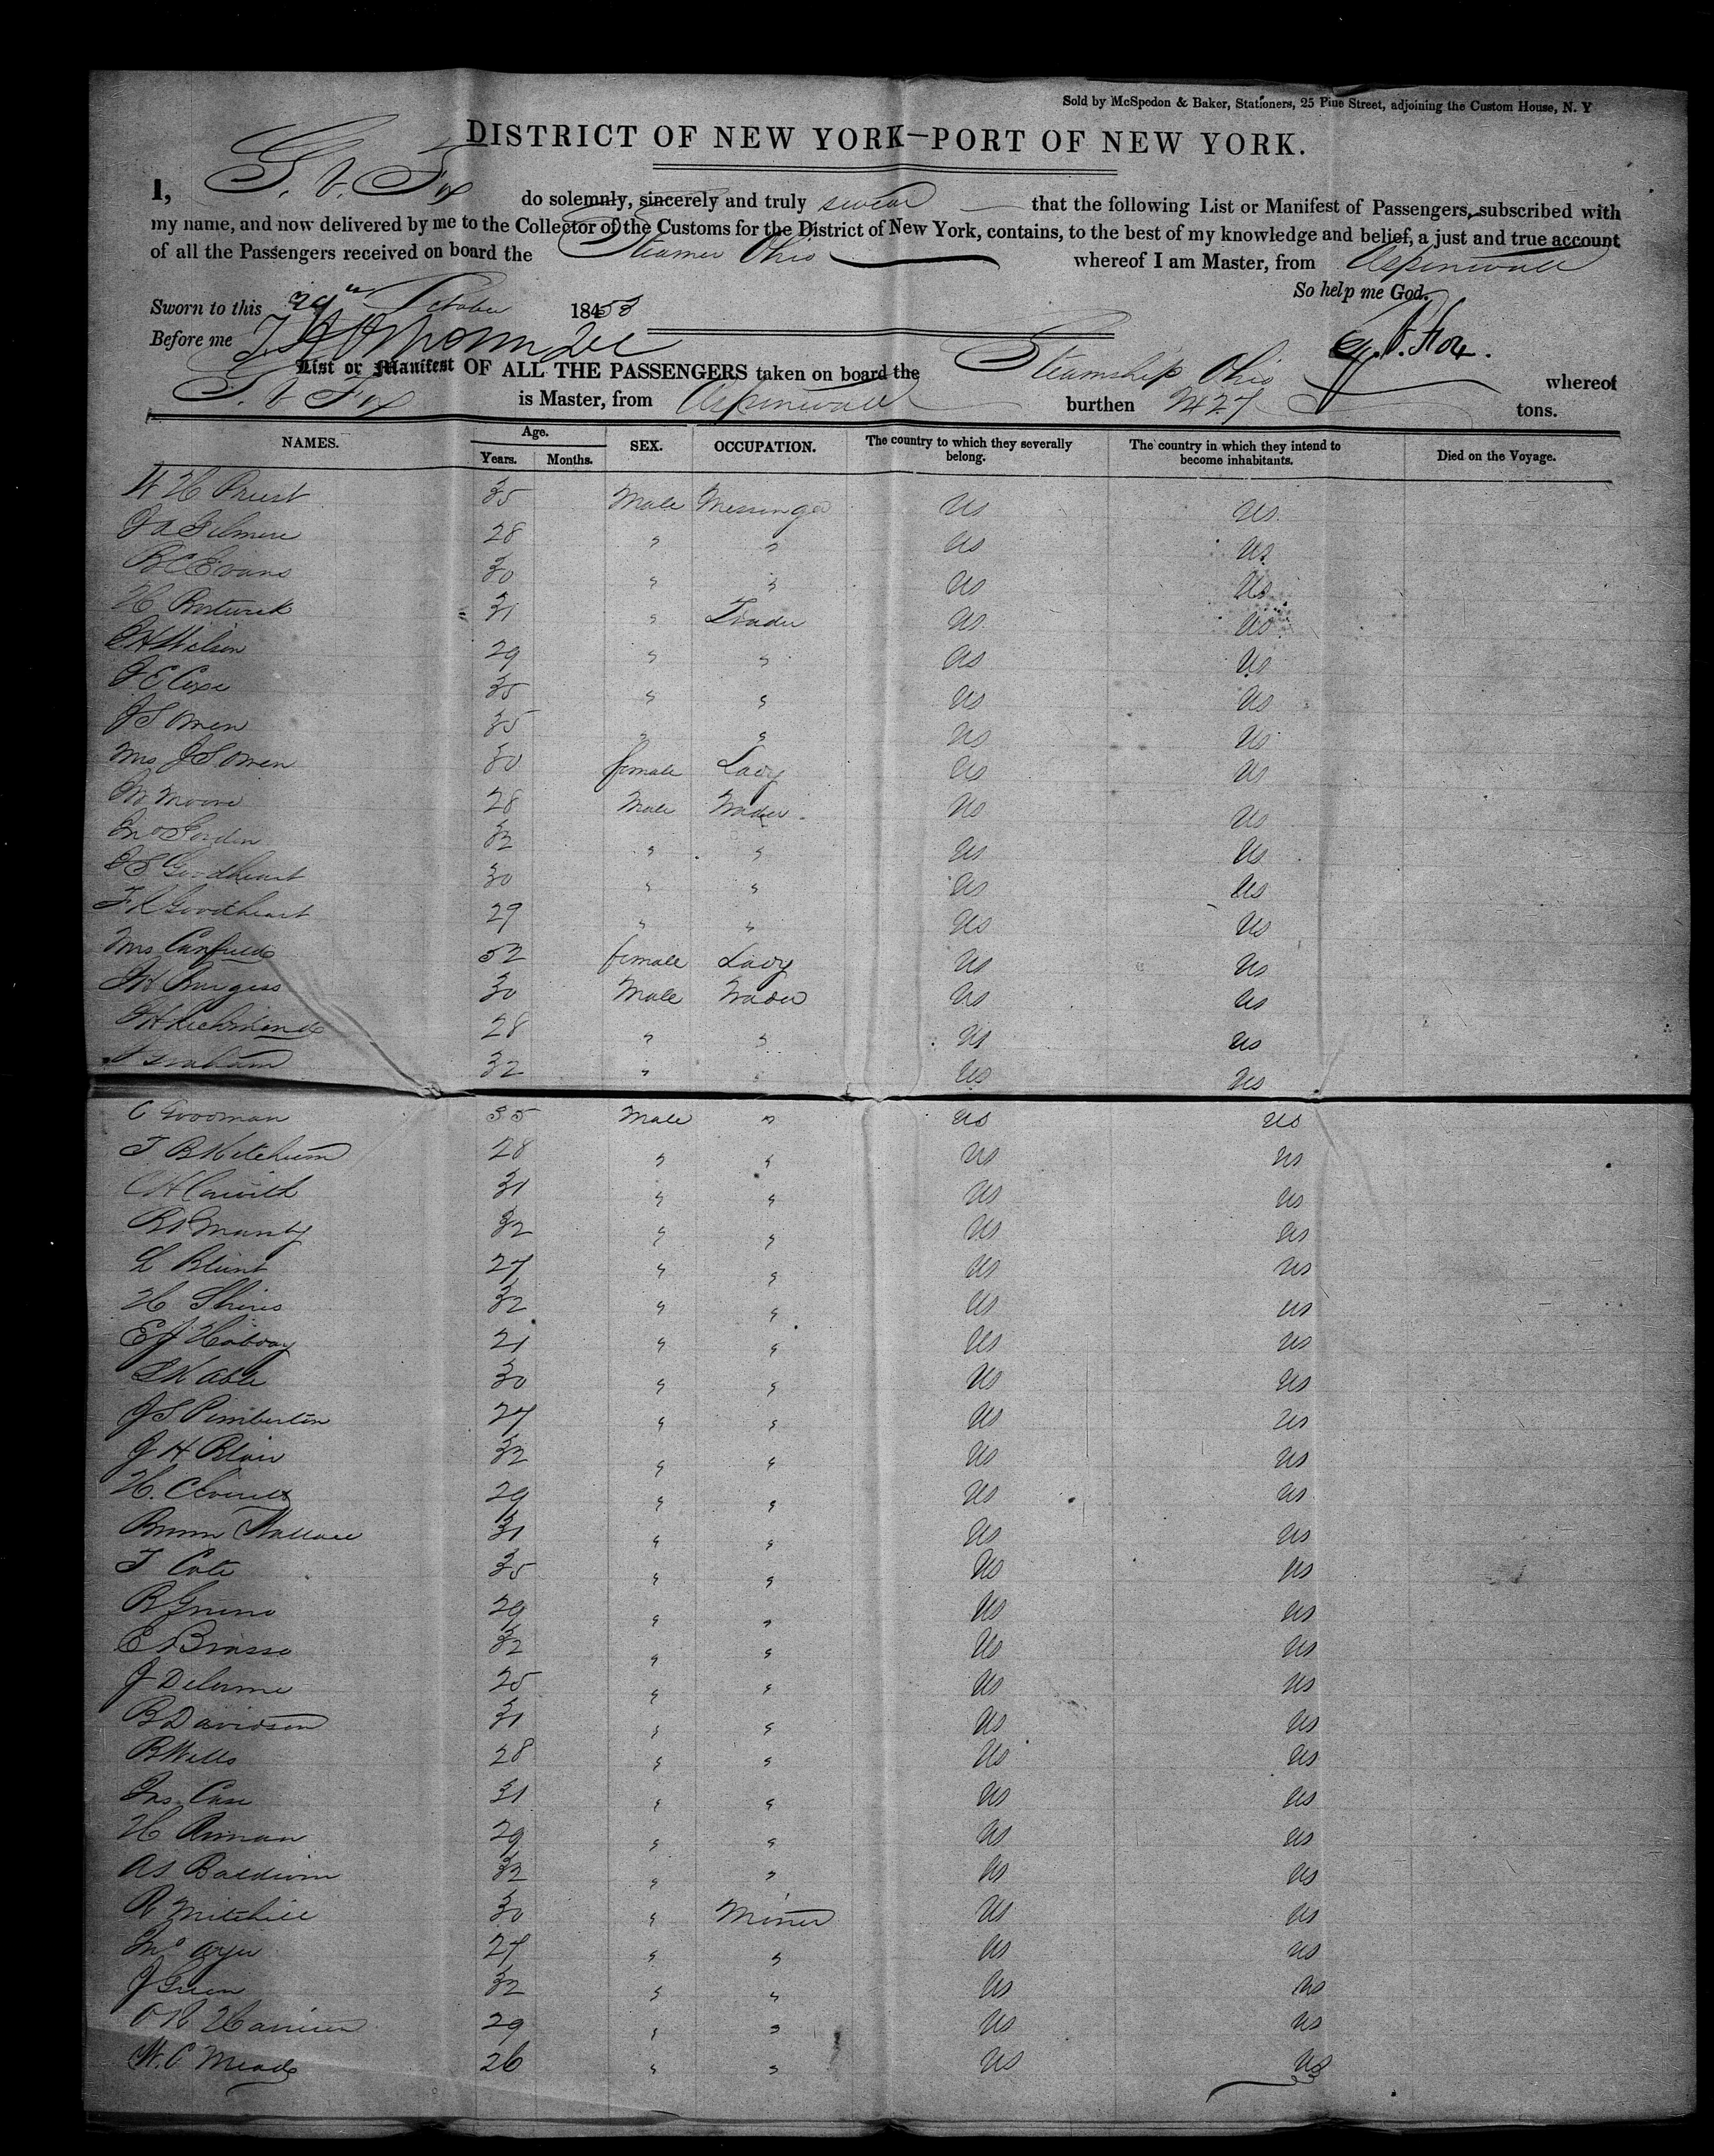 Sold by McSpedon & Baker, Stationers, 25 Pine Street, adjoining the Custom House, N. Y
DISTRICT OF NEW YORK—PORT OF NEW YORK.
I, G. V. Fox do solemnly, sincerely and truly swear that the following List or Manifest of Passengers, subscribed with
my name, and now delivered by me to the Collector of the Customs for the District of New York, contains, to the best of my knowledge and belief, a just and true account
of all the Passengers received on board the Steamer Ohio whereof I am Master, from Aspinwall
So help me God.
Sworn to this 29th October 1853
Before me G. V. Fox.
List or Manifest OF ALL THE PASSENGERS taken on board the Steamship Ohio whereof
G. V. Fox is Master, from Aspinwall burthen 2427 tons.
NAMES. Age. Years. Months. SEX. OCCUPATION. The country to which they severally belong. The country in which they intend to become inhabitants. Died on the Voyage.
W H Priest 35 Male Messenger US US
J A Gilmore 28 " " US US
B C Evans 30 " " US US
H Bostwick 31 " Trader US US
Wilson 29 " " US US
J E Coxe 35 " " US US
J S Owen 35 " " US US
Mrs J S Owen 30 female Lady US US
Wm Moore 28 Male Trader US US
Jno Gordon 32 " " US US
J S Goodheart 30 " " US US
F R Goodheart 29 " " US US
Mrs Canfield 52 female Lady US US
J H Burgess 30 Male Trader US US
Richmond 28 " " US US
Graham 32 " US US
C Goodman 35 Male " US US
T B Ketchum 28 " " US US
C H Corwith 31 " " US US
32 " " US US
L Blunt 27 " " US US
H Shires 32 " " US US
E J 21 " " US US
S K Able 30 " " US US
J S Pemberton 27 " " US US
J H Blair 32 " " US US
H. 29 " " US US
Wallace 31 " " US US
T Cole 35 " " US US
B 29 " " US US
E Brasse 32 " " US US
J Delorme 25 " " US US
B Davidson 31 " " US US
B Wells 28 " " US US
Jas Case 31 " " US US
H 29 " " US US
A S Baldwin 32 " " US US
R Mitchell 30 " Miner US US
27 " " US US
J Green 32 " " US US
O R Harrison 29 " " US US
W. C Meade 26 " " US US